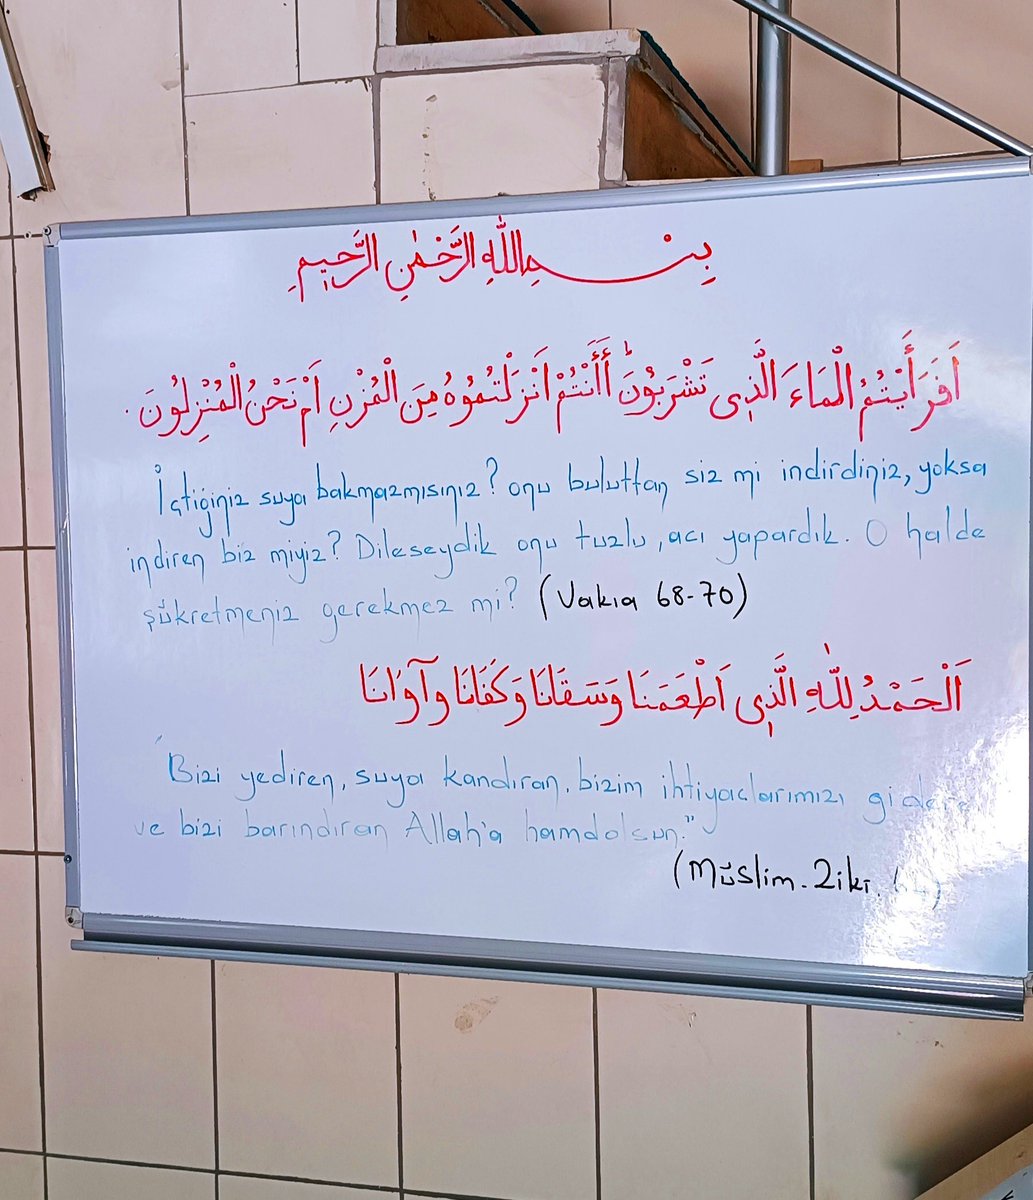 بِسْــــمِ اللّٰهِ الرَّحْمٰنِ الرَّحِيمِ
اَفَرَأَيْتُمُ الْمَاءَ الَّذِى تَشْرَبُوْنَۜ أَأَنْتُمْ اَنْزَلْتُمُوْهُ مِنَ الْمُزْنِ أَمْ نَحْنُ الْمُنْزِلُونَ.
İçtiğiniz suya bakmazmısınız? onu buluttan siz mi indirdiniz, yoksa
indiren biz miyiz? Dileseydik onu tuzlu, acı yapardık. O halde
şükretmeniz gerekmez mi? (Vakıa 68-70)
اَلْحَمْدُ لِلّٰهِ الَّذِى اَطْعَمَنَا وَسَقَانَا وَكَفَانَا وَآوَانَا
"Bizi yediren, suya kandıran, bizim ihtiyaclarımızı
ve bizi barındıran Allah'a hamdolsun."
(Müslim. Zikr.